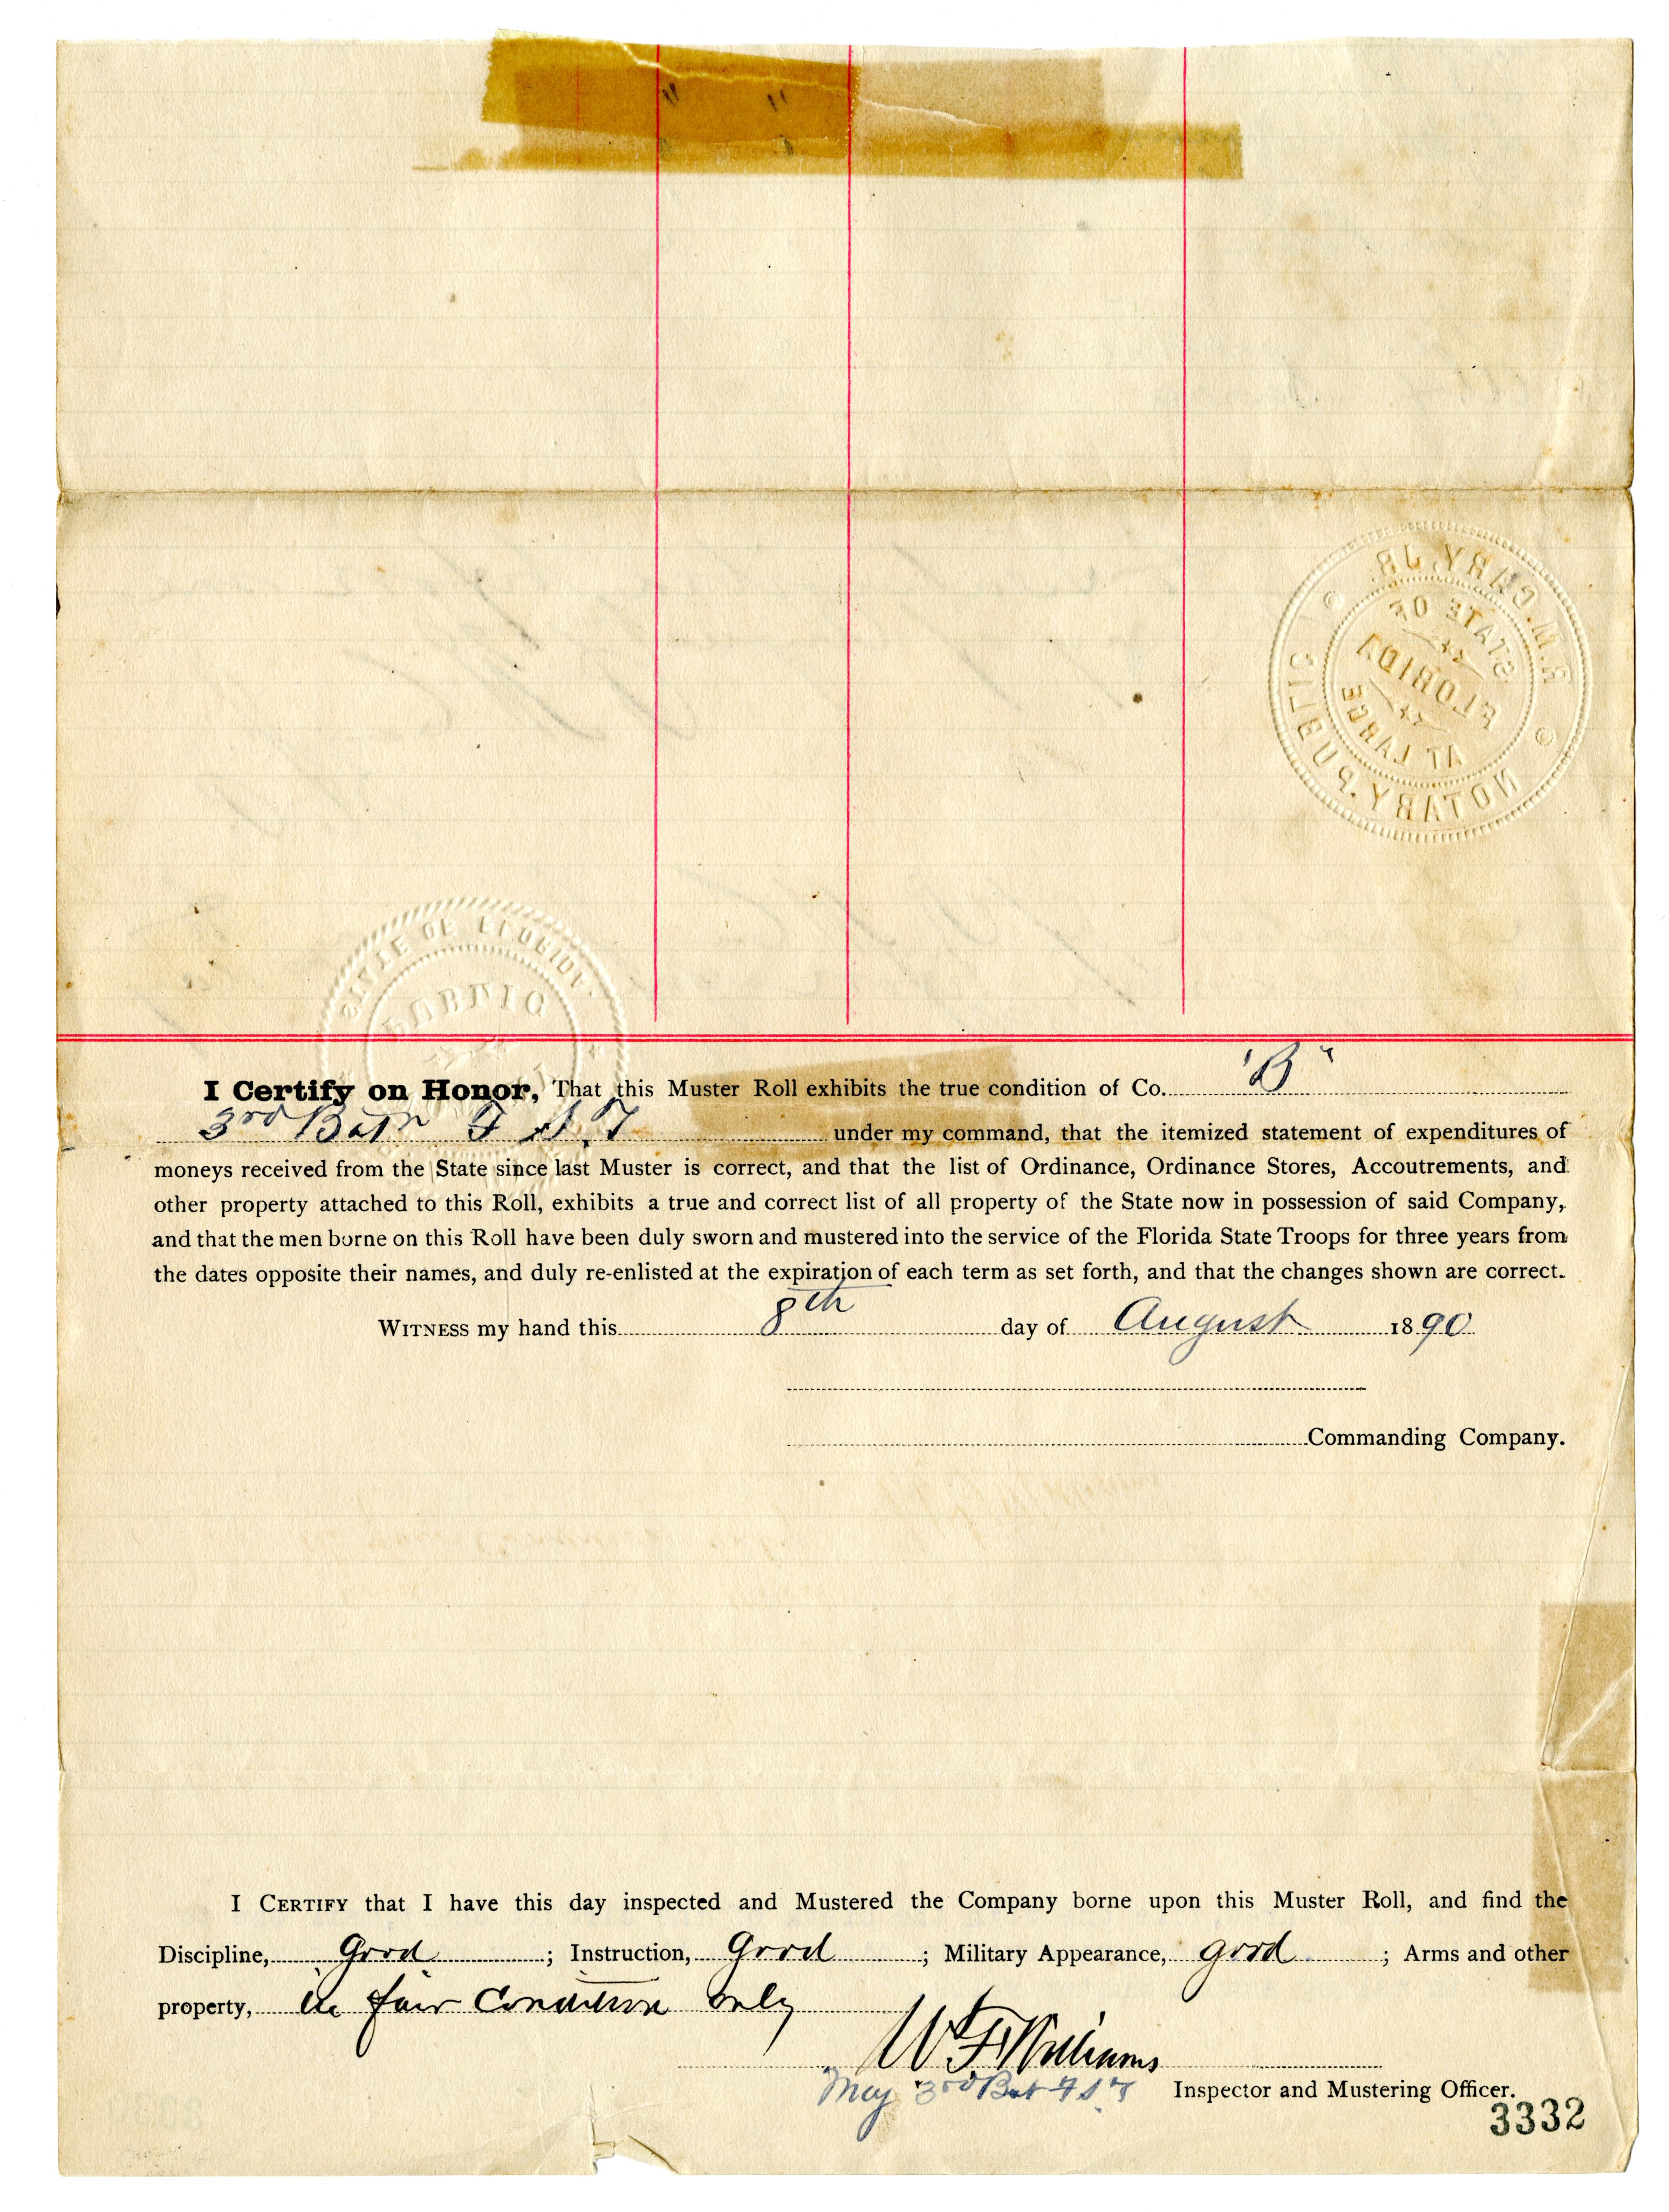 " "
R. M. CARY, JR.
NOTARY PUBLIC
STATE OF
FLORIDA
AT LARGE
STATE OF FLORIDA
I Certify on Honor, That this Muster Roll exhibits the true condition of Co. "B"
3rd Batn F.S.T under my command, that the itemized statement of expenditures of
moneys received from the State since last Muster is correct, and that the list of Ordinance, Ordinance Stores, Accoutrements, and
other property attached to this Roll, exhibits a true and correct list of all property of the State now in possession of said Company,
and that the men borne on this Roll have been duly sworn and mustered into the service of the Florida State Troops for three years from
the dates opposite their names, and duly re-enlisted at the expiration of each term as set forth, and that the changes shown are correct.
WITNESS my hand this 8th day of August 1890
Commanding Company.
I CERTIFY that I have this day inspected and Mustered the Company borne upon this Muster Roll, and find the
Discipline, Good; Instruction, Good; Military Appearance, good; Arms and other
property, in fair Condition only
W F Williams
Maj 3rd Bat F.S.T Inspector and Mustering Officer.
3332